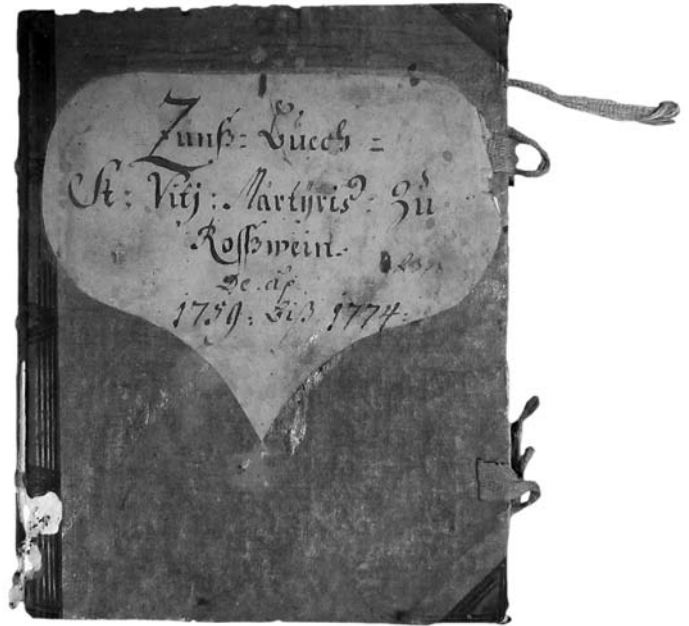 Zunß: Buech =
St: Vitj: Martÿris: Zu
Rosßwein.
De
1759: Biß 1774: